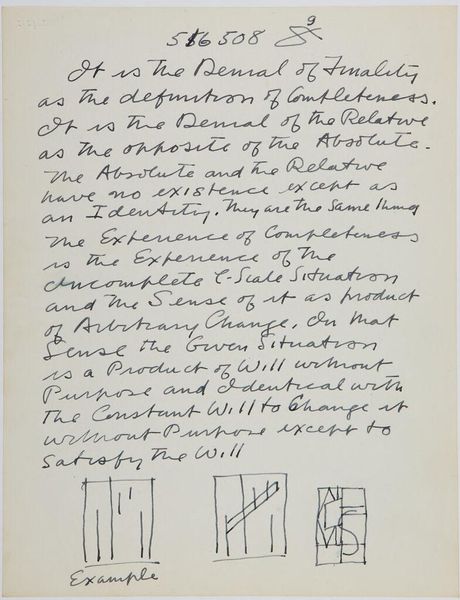 516 508 9
It is the Denial of Finality
as the definition of Completeness.
It is the Denial of the Relative
as the opposite of the Absolute.
The Absolute and the Relative
have no existence except as
an Identity. They are the Same thing
The Experience of Completeness
is the Experience of the
Incomplete C-Scale Situation
and the Sense of it as product
of Arbitrary Change. In that
Sense the Given Situation
is a Product of Will without
Purpose and Identical with
the Constant Will to Change it
without Purpose except to
Satisfy the Will
Example